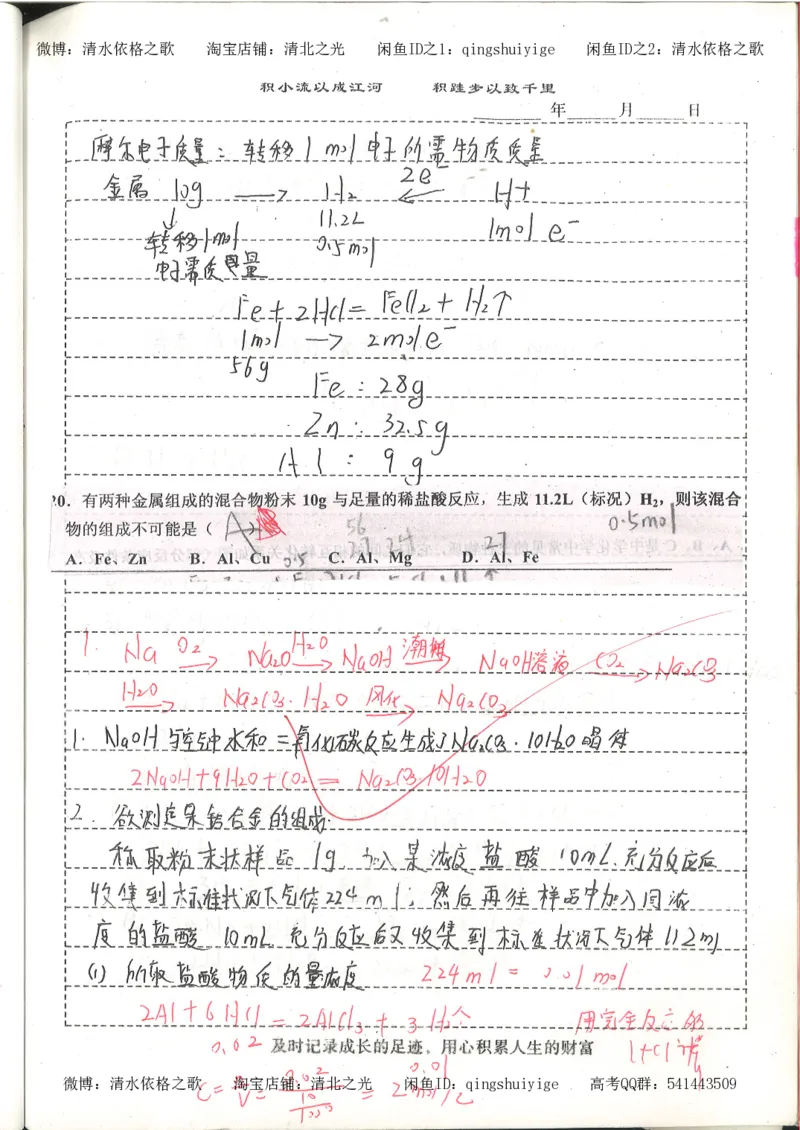 微博：清水依格之歌 淘宝店铺：清北之光 闲鱼ID之1：qingshuiyige 闲鱼ID之2：清水依格之歌
积小流以成江河 积跬步以致千里
年 月 日
摩尔电子质量：转移1mol电子所需物质质量
金属 10g → 1H₂ 2e⁻ ← H+
↓ 11.2L 1mol e⁻
转移1mol 0.5mol
电子需质量
Fe+2HCl=FeCl₂+H₂↑
1mol → 2mole⁻
56g
Fe：28g
Zn：32.5g
Al：9g
20．有两种金属组成的混合物粉末 10g 与足量的稀盐酸反应，生成 11.2L（标况）H₂，则该混合
物的组成不可能是（ A 0.5mol
56
27 24 27
A．Fe、Zn B．Al、Cu 0.5 C．Al、Mg D．Al、Fe
1. Na O₂ → Na₂O H₂O → NaOH 潮解 → NaOH溶液 CO₂ → Na₂CO₃
H₂O → Na₂CO₃·H₂O 风化 → Na₂CO₃
1. NaOH与空气中水和二氧化碳反应生成了Na₂CO₃·10H₂O晶体
2NaOH+9H₂O+CO₂=Na₂CO₃·10H₂O
2. 欲测定某铝合金的组成.
称取粉末状样品 1g 加入某浓度盐酸 10mL.充分反应后
收集到标准状况下气体224ml；然后再往样品中加入同浓
度的盐酸 10mL 充分反应后又收集到标准状况下气体112ml
(1) 所取盐酸物质的量浓度 224ml=0.01mol
2Al+6HCl=2AlCl₃+3H₂↑ 用完全反应的
0.02 及时记录成长的足迹，用心积累人生的财富 HCl计算
0.01
微博：清水依格之歌 淘宝店铺：清北之光 闲鱼ID：qingshuiyige 高考QQ群：541443509
C=n/V=0.02/(10/1000)=2mol/L